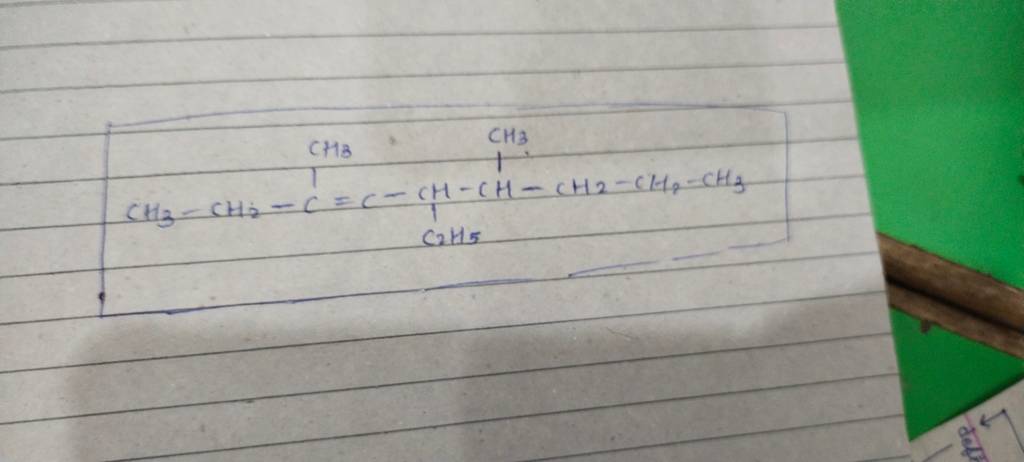 CH3 CH3
CH3 - CH2 - C = C - CH - CH - CH2 - CH2 - CH3
C2H5